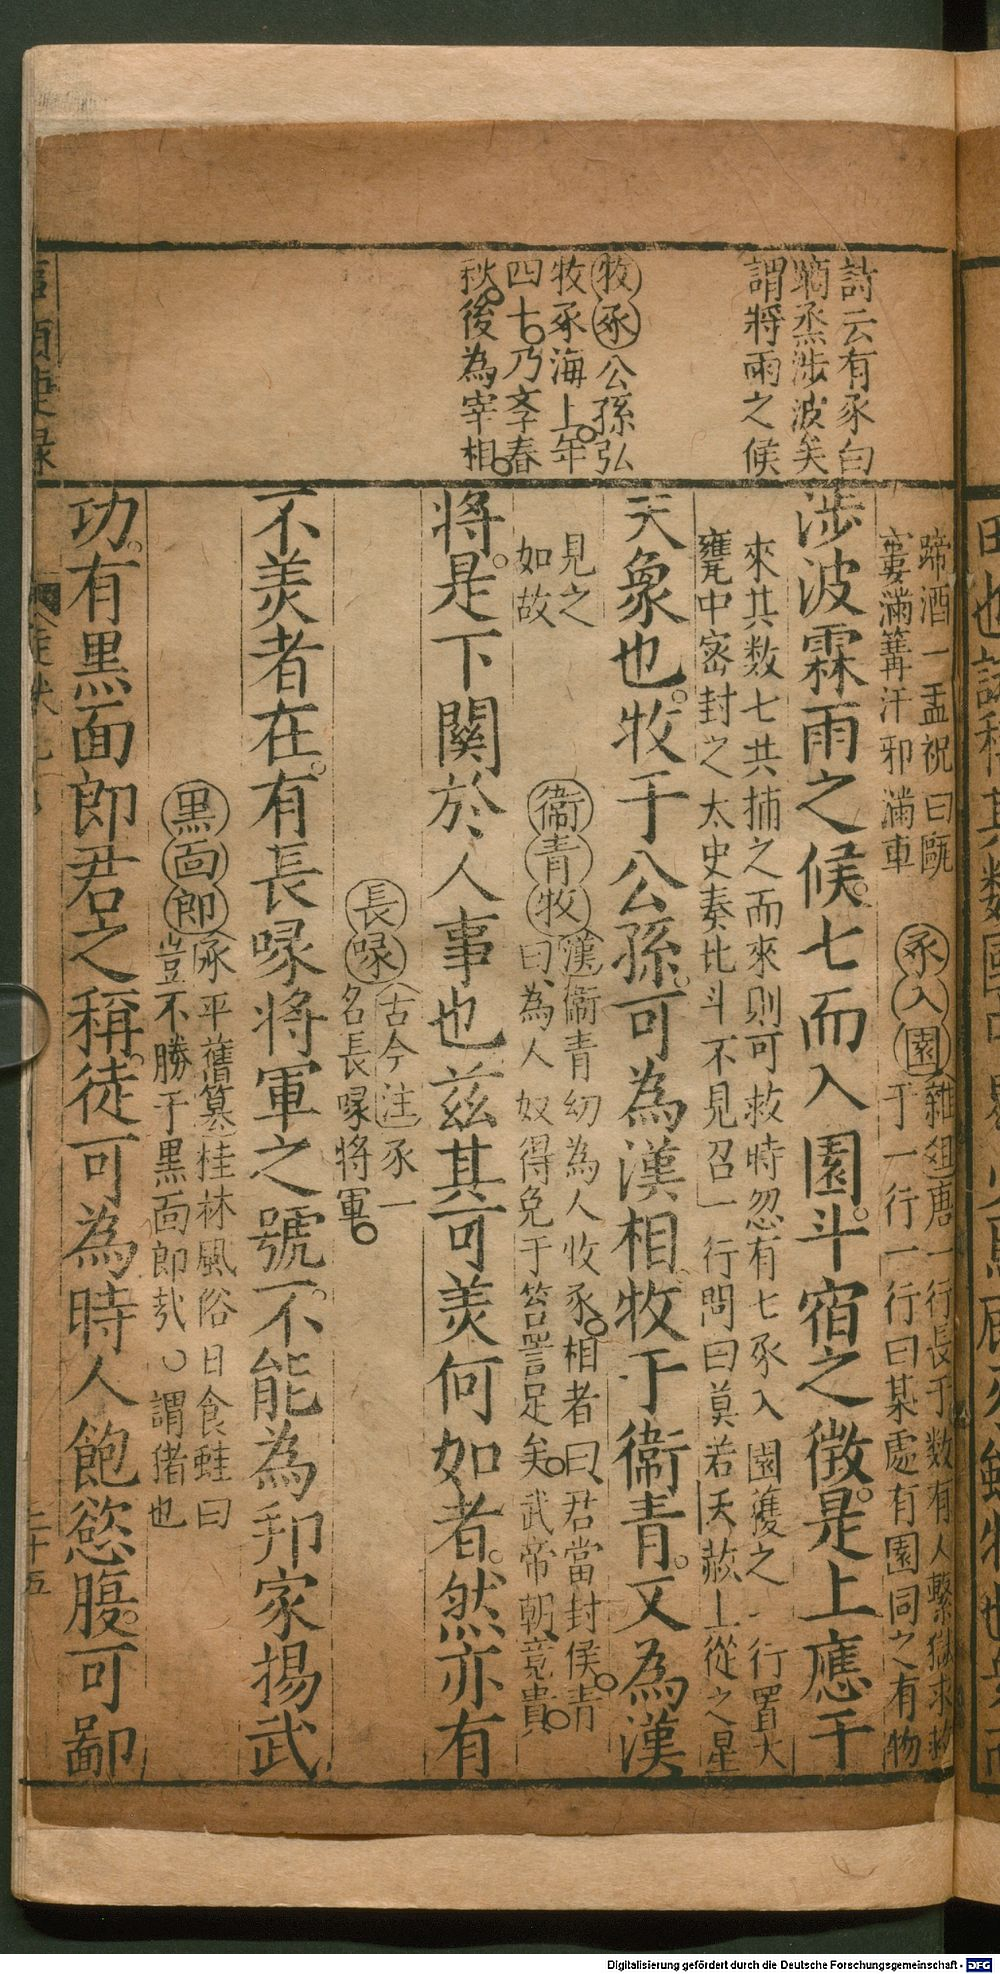 詩云有豕白
蹢烝涉波矣
謂將雨之候
牧豕公孫弘
牧豕海上年
四十乃李春
秋後為宰相
蹄酒一盂祝曰甌
窶滿篝汙邪滿車
豕入園
雜俎唐一行長于数有人繫獄求救
于一行一行曰某處有園同之有物
涉波霖雨之候七而入園斗宿之徵是上應于
來其数七共捕之而來則可救時忽有七豕入園獲之一行置大
甕中密封之太史奏北斗不見召一行問曰莫若天赦上從之星
天象也牧于公孫可為漢相牧于衞青又為漢
見之
如故
衞青牧
漢衞青幼為人收豕相者曰君當封侯青
曰為人奴得免于笞詈足矣武帝朝竟貴
將是下關於人事也茲其可羡何如者然亦有
長喙
古今注豕一
名長喙将軍
不羡者在有長喙将軍之號不能為邦家揚武
黒面郎
承平舊纂桂林風俗日食蛙曰
豈不勝于黒面郎㢤謂猪也
功有黒面郎君之稱徒可為時人飽慾腹可鄙
二十五
Digitalisierung gefördert durch die Deutsche Forschungsgemeinschaft - DFG